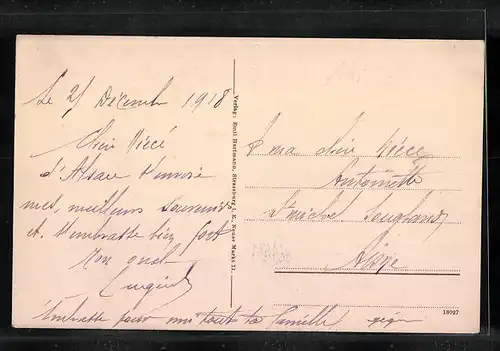 Le 21 Décembre 1918
Chère Niécé
d'Alsace t'envoie
mes, meilleurs souvenirs
et t'embrasse bien fort
Ton oncle
Eugène
Embrasse pour moi toute ta famille
Verlag: Emil Hartmann, Strassburg i. E., Neuer Markt 11.
A ma chère Nièce
Antoinette
St michel Sougland
Aisne
18097